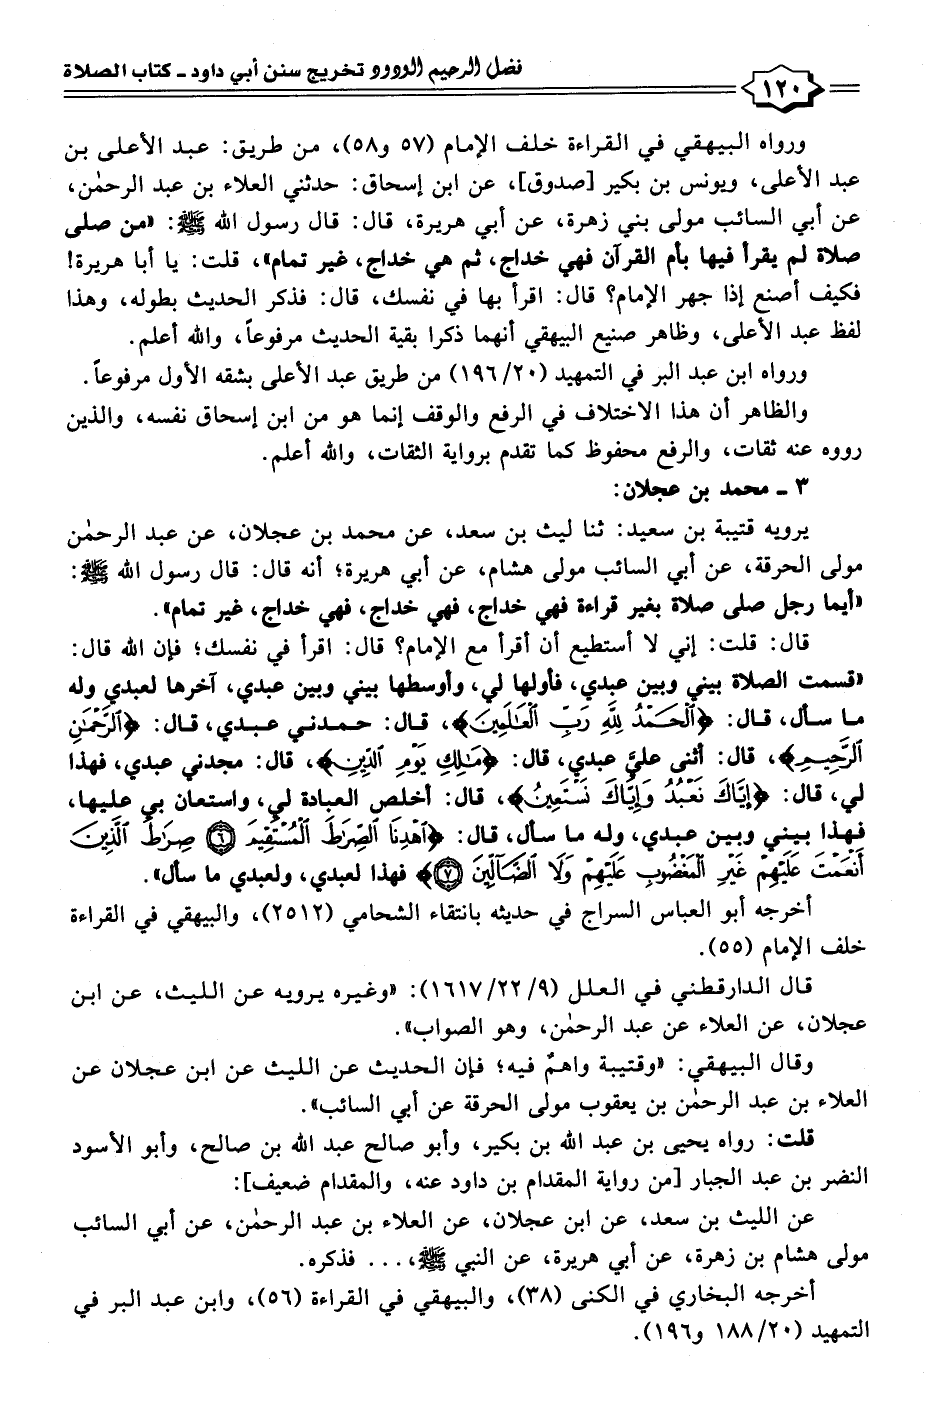 فضل الرحيم الودود تخريج سنن أبي داود ـ كتاب الصلاة
١٢٠
ورواه البيهقي في القراءة خلف الإمام (٥٧ و٥٨)، من طريق: عبد الأعلى بن
عبد الأعلى، ويونس بن بكير [صدوق]، عن ابن إسحاق: حدثني العلاء بن عبد الرحمٰن،
عن أبي السائب مولى بني زهرة، عن أبي هريرة، قال: قال رسول الله ﷺ: «من صلى
صلاة لم يقرأ فيها بأم القرآن فهي خداج، ثم هي خداج، غير تمام»، قلت: يا أبا هريرة!
فكيف أصنع إذا جهر الإمام؟ قال: اقرأ بها في نفسك، قال: فذكر الحديث بطوله، وهذا
لفظ عبد الأعلى، وظاهر صنيع البيهقي أنهما ذكرا بقية الحديث مرفوعاً، والله أعلم.
ورواه ابن عبد البر في التمهيد (١٩٦/٢٠) من طريق عبد الأعلى بشقه الأول مرفوعاً.
والظاهر أن هذا الاختلاف في الرفع والوقف إنما هو من ابن إسحاق نفسه، والذين
رووه عنه ثقات، والرفع محفوظ كما تقدم برواية الثقات، والله أعلم.
٣ ـ محمد بن عجلان:
يرويه قتيبة بن سعيد: ثنا ليث بن سعد، عن محمد بن عجلان، عن عبد الرحمٰن
مولى الحرقة، عن أبي السائب مولى هشام، عن أبي هريرة؛ أنه قال: قال رسول الله ﷺ:
«أيما رجل صلى صلاة بغير قراءة فهي خداج، فهي خداج، فهي خداج، غير تمام».
قال: قلت: إني لا أستطيع أن أقرأ مع الإمام؟ قال: اقرأ في نفسك؛ فإن الله قال:
«قسمت الصلاة بيني وبين عبدي، فأولها لي، وأوسطها بيني وبين عبدي، آخرها لعبدي وله
ما سأل، قال: ﴿ٱلْحَمْدُ لِلَّهِ رَبِّ ٱلْعَٰلَمِينَ﴾، قال: حمدني عبدي، قال: ﴿ٱلرَّحْمَٰنِ
ٱلرَّحِيمِ﴾، قال: أثنى عليَّ عبدي، قال: ﴿مَٰلِكِ يَوْمِ ٱلدِّينِ﴾، قال: مجدني عبدي، فهذا
لي، قال: ﴿إِيَّاكَ نَعْبُدُ وَإِيَّاكَ نَسْتَعِينُ﴾، قال: أخلص العبادة لي، واستعان بي عليها،
فهذا بيني وبين عبدي، وله ما سأل، قال: ﴿ٱهْدِنَا ٱلصِّرَٰطَ ٱلْمُسْتَقِيمَ ۝٦ صِرَٰطَ ٱلَّذِينَ
أَنْعَمْتَ عَلَيْهِمْ غَيْرِ ٱلْمَغْضُوبِ عَلَيْهِمْ وَلَا ٱلضَّآلِّينَ ۝٧﴾ فهذا لعبدي، ولعبدي ما سأل».
أخرجه أبو العباس السراج في حديثه بانتقاء الشحامي (٢٥١٢)، والبيهقي في القراءة
خلف الإمام (٥٥).
قال الدارقطني في العلل (١٦١٧/٢٢/٩): «وغيره يرويه عن الليث، عن ابن
عجلان، عن العلاء عن عبد الرحمٰن، وهو الصواب».
وقال البيهقي: «وقتيبة واهمٌ فيه؛ فإن الحديث عن الليث عن ابن عجلان عن
العلاء بن عبد الرحمٰن بن يعقوب مولى الحرقة عن أبي السائب».
قلت: رواه يحيى بن عبد الله بن بكير، وأبو صالح عبد الله بن صالح، وأبو الأسود
النضر بن عبد الجبار [من رواية المقدام بن داود عنه، والمقدام ضعيف]:
عن الليث بن سعد، عن ابن عجلان، عن العلاء بن عبد الرحمٰن، عن أبي السائب
مولى هشام بن زهرة، عن أبي هريرة، عن النبي ﷺ، ... فذكره.
أخرجه البخاري في الكنى (٣٨)، والبيهقي في القراءة (٥٦)، وابن عبد البر في
التمهيد (١٨٨/٢٠ و١٩٦).